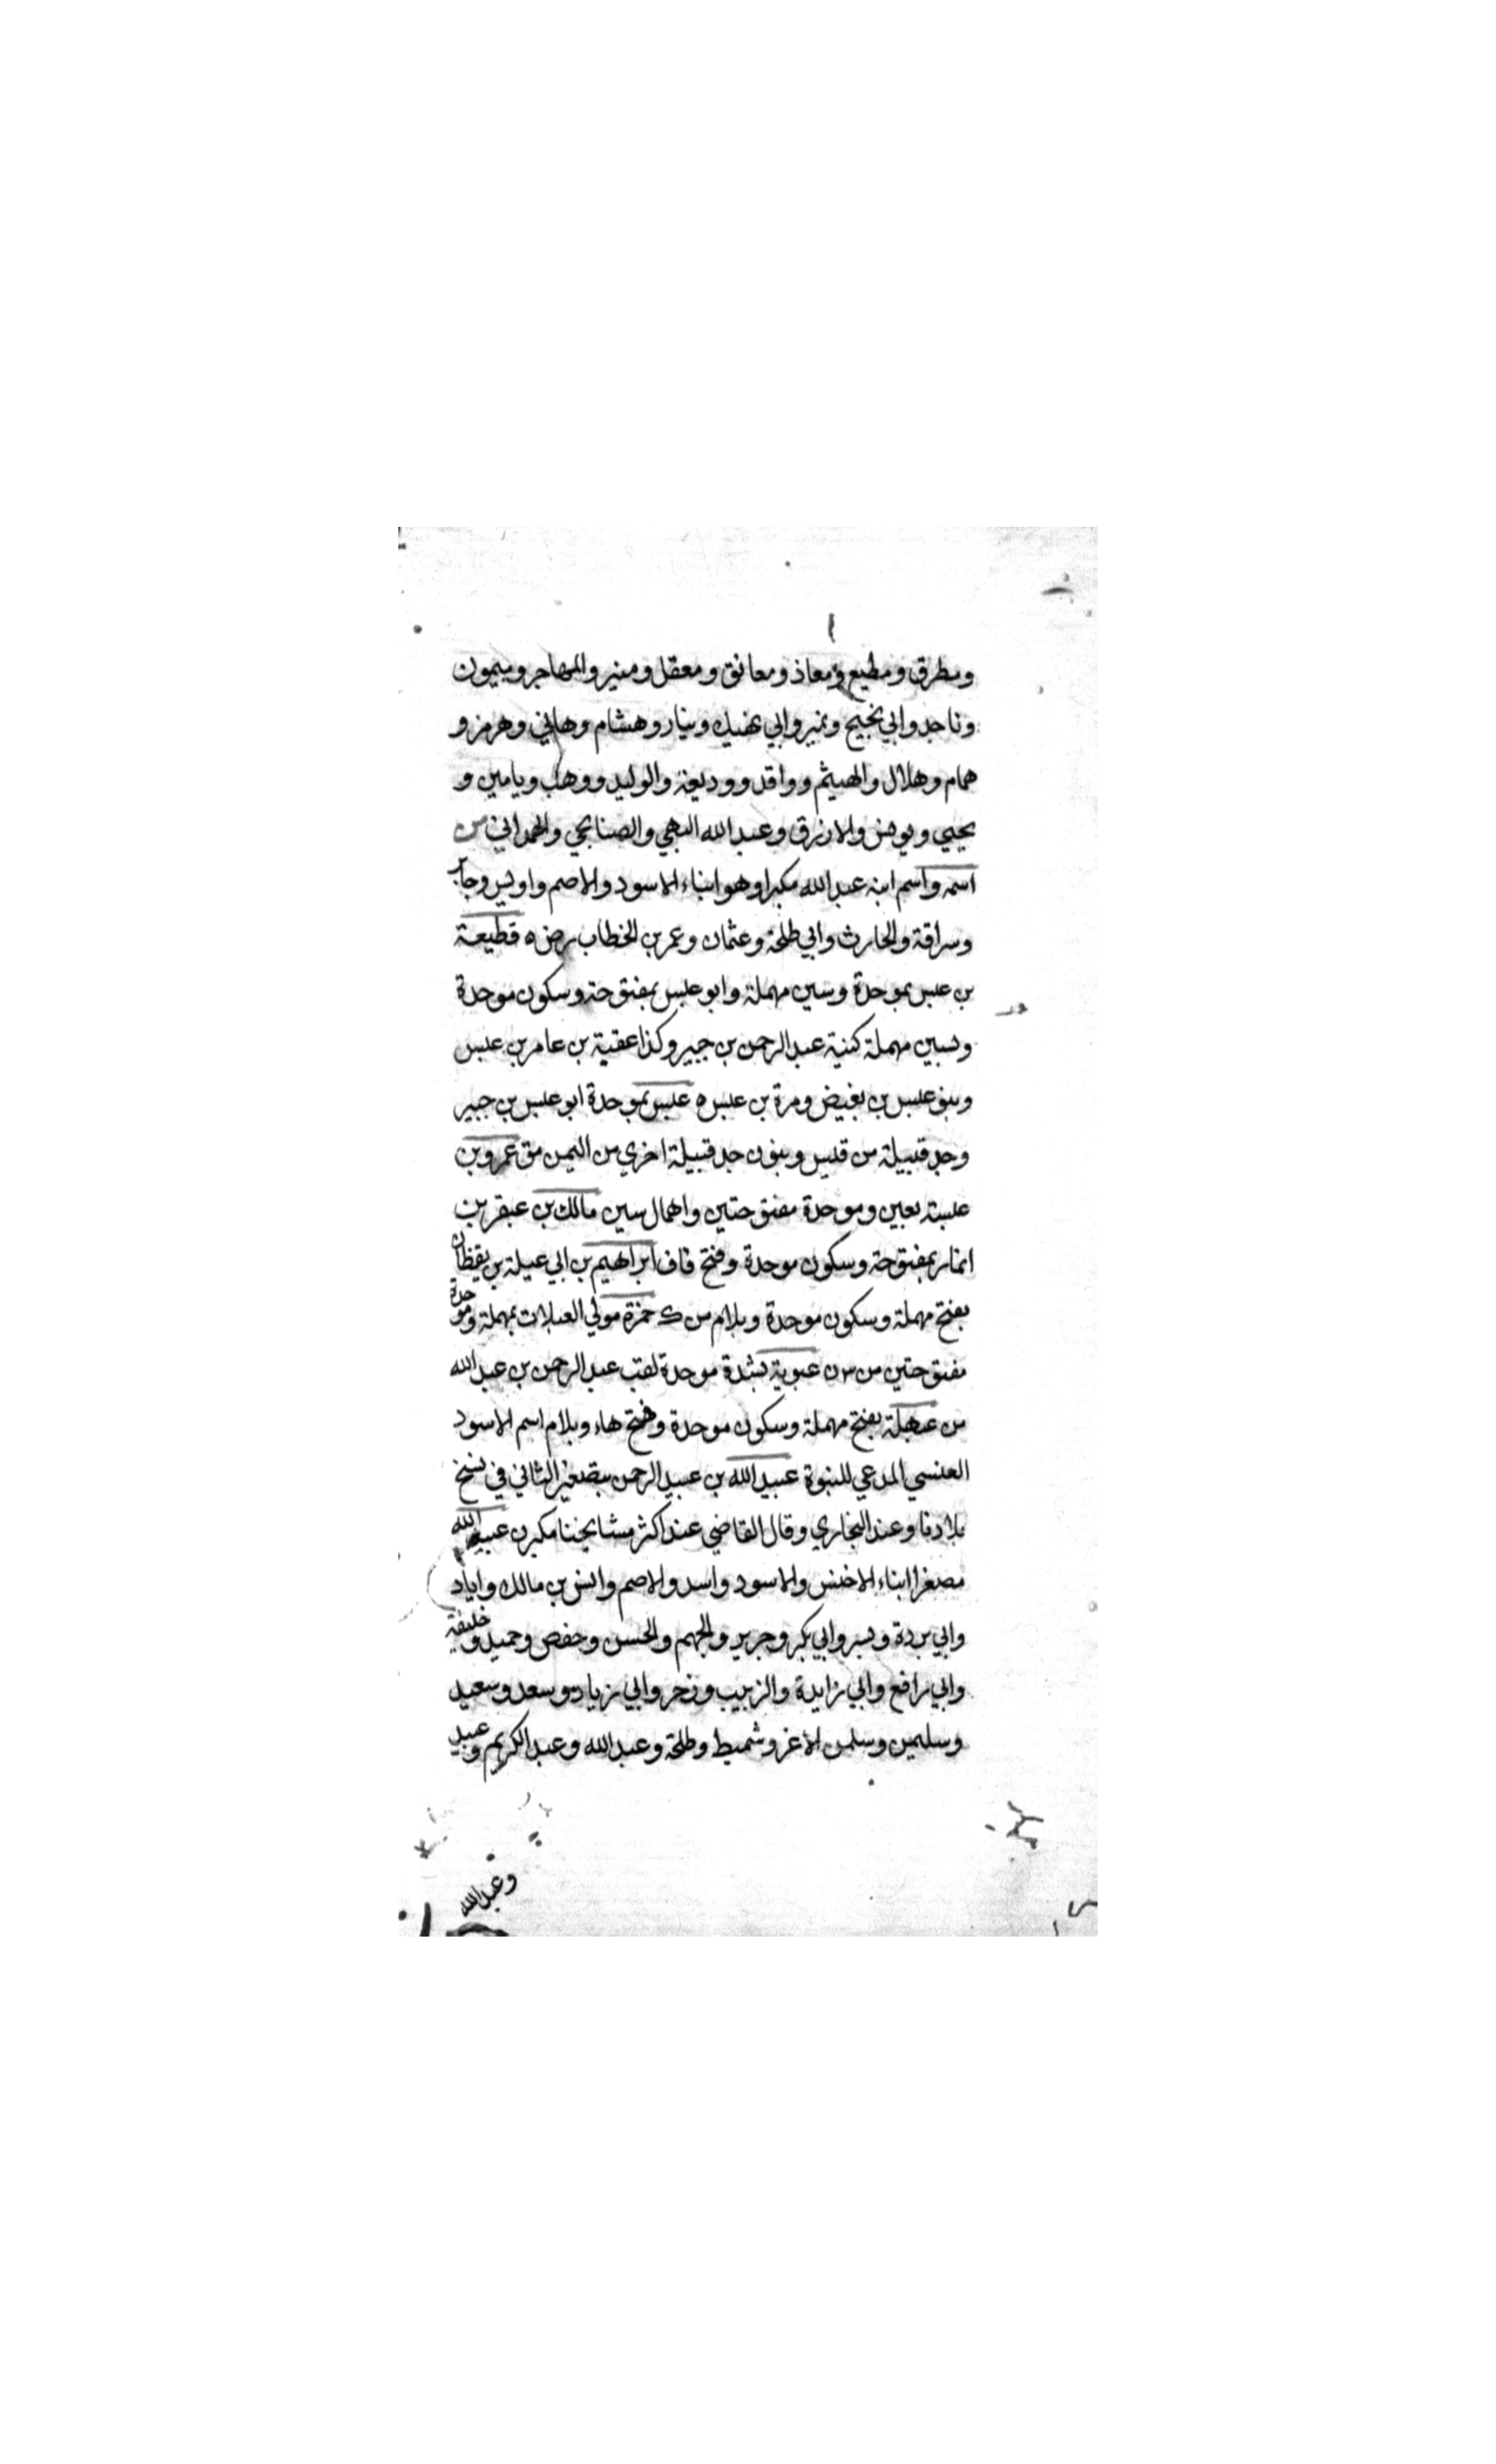 ومطرق ومطيع ومعاذ ومعانق ومعقل ومنير والمهاجر وميمون
وناجد وابي نجيح ونمير وابي نهيك ونيار وهشام وهاني وهرمز و
همام وهلال والهيثم وواقد ووديعة والوليد ووهب ويامين و
يحيي ويونس والازرق وعبد الله البهي والصنابحي والهمداني من
اسمه واسم ابنه عبد الله مكبرا وهو ابناء الاسود والاصم واويس وجابر
وسراقة والحارث وابي طلحة وعثمان وعمر بن الخطاب رض ه قطيعة
بن عبس بموحدة وسين مهملة وابو عبس بمفتوحة وسكون موحدة
وبسين مهملة كنية عبد الرحمن بن جبير وكذا عقبة بن عامر بن عبس
وبنو عبس بن بغيض ومرة بن عبس ه عبس بموحدة ابو عبس بن جبير
وجد قبيلة من قيس وبنون جد قبيلة اخري من اليمن مق عمرو بن
عبسة بعين وموحدة مفتوحتين واهمال سين مالك بن عبقر بن
انمار بمفتوحة وسكون موحدة وفتح قاف ابراهيم بن ابي عبلة بن يقظان
بفتح مهملة وسكون موحدة وبلام من ك حمزة مولي العبلات بمهملة وموحدة
مفتوحتين من س ن عبوية بشدة موحدة لقب عبد الرحمن بن عبد الله
من عبهلة بفتح مهملة وسكون موحدة وفتح هاء وبلام اسم الاسود
العنسي المدعي للنبوة عبيد الله بن عبيد الرحمن بتصغير الثاني في نسخ
بلادنا وعند البخاري وقال القاضي عند اكثر مشايخنا مكبر ن عبيد الله
مصغرا ابناء الاخنس والاسود واسد والاصم وانس بن مالك واياد
وابي بردة وبسر وابي بكر وجرير والجهم والحسن وحفص وحميد وخليفة
وابي رافع وابي زايدة والزبيب وزحر وابي زياد وسعد وسعيد
وسليمن وسلمن الاغر وشميط وطلحة وعبد الله وعبد الكريم وعبيد
وعبد الله